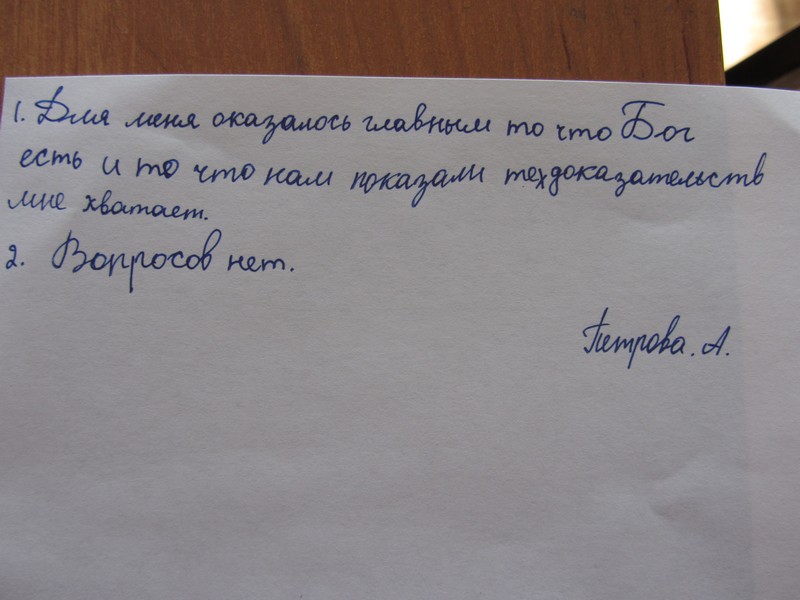 1. Для меня оказалось главным то что Бог
есть и то что нам показали тех доказательств
мне хватает.
2. Вопросов нет.
Петрова. А.